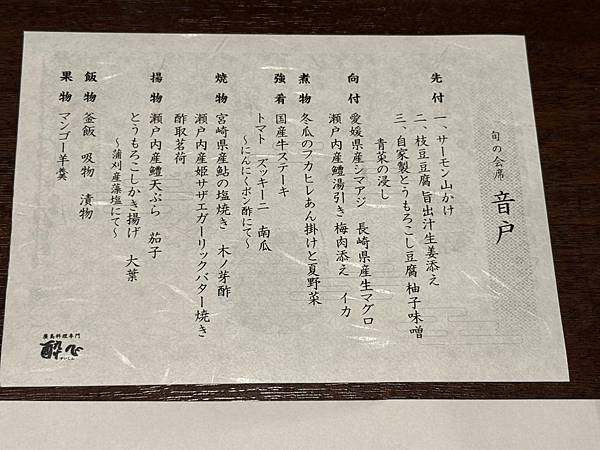 旬の会席 音戸
先付 一、サーモン山かけ
二、枝豆豆腐 旨出汁生姜添え
三、自家製とうもろこし豆腐 柚子味噌
青菜の浸し
向付 愛媛県産シマアジ 長崎県産生マグロ
瀬戸内産鱧湯引き 梅肉添え イカ
煮物 冬瓜のフカヒレあん掛けと夏野菜
強肴 国産牛ステーキ
トマト ズッキーニ 南瓜
～にんにくポン酢にて～
焼物 宮崎県産鮎の塩焼き 木ノ芽酢
瀬戸内産姫サザエガーリックバター焼き
酢取茗荷
揚物 瀬戸内産鱧天ぷら 茄子
とうもろこしかき揚げ 大葉
～蒲刈産藻塩にて～
飯物 釜飯 吸物 漬物
果物 マンゴー羊羹
廣島料理専門
酔心
すいしん